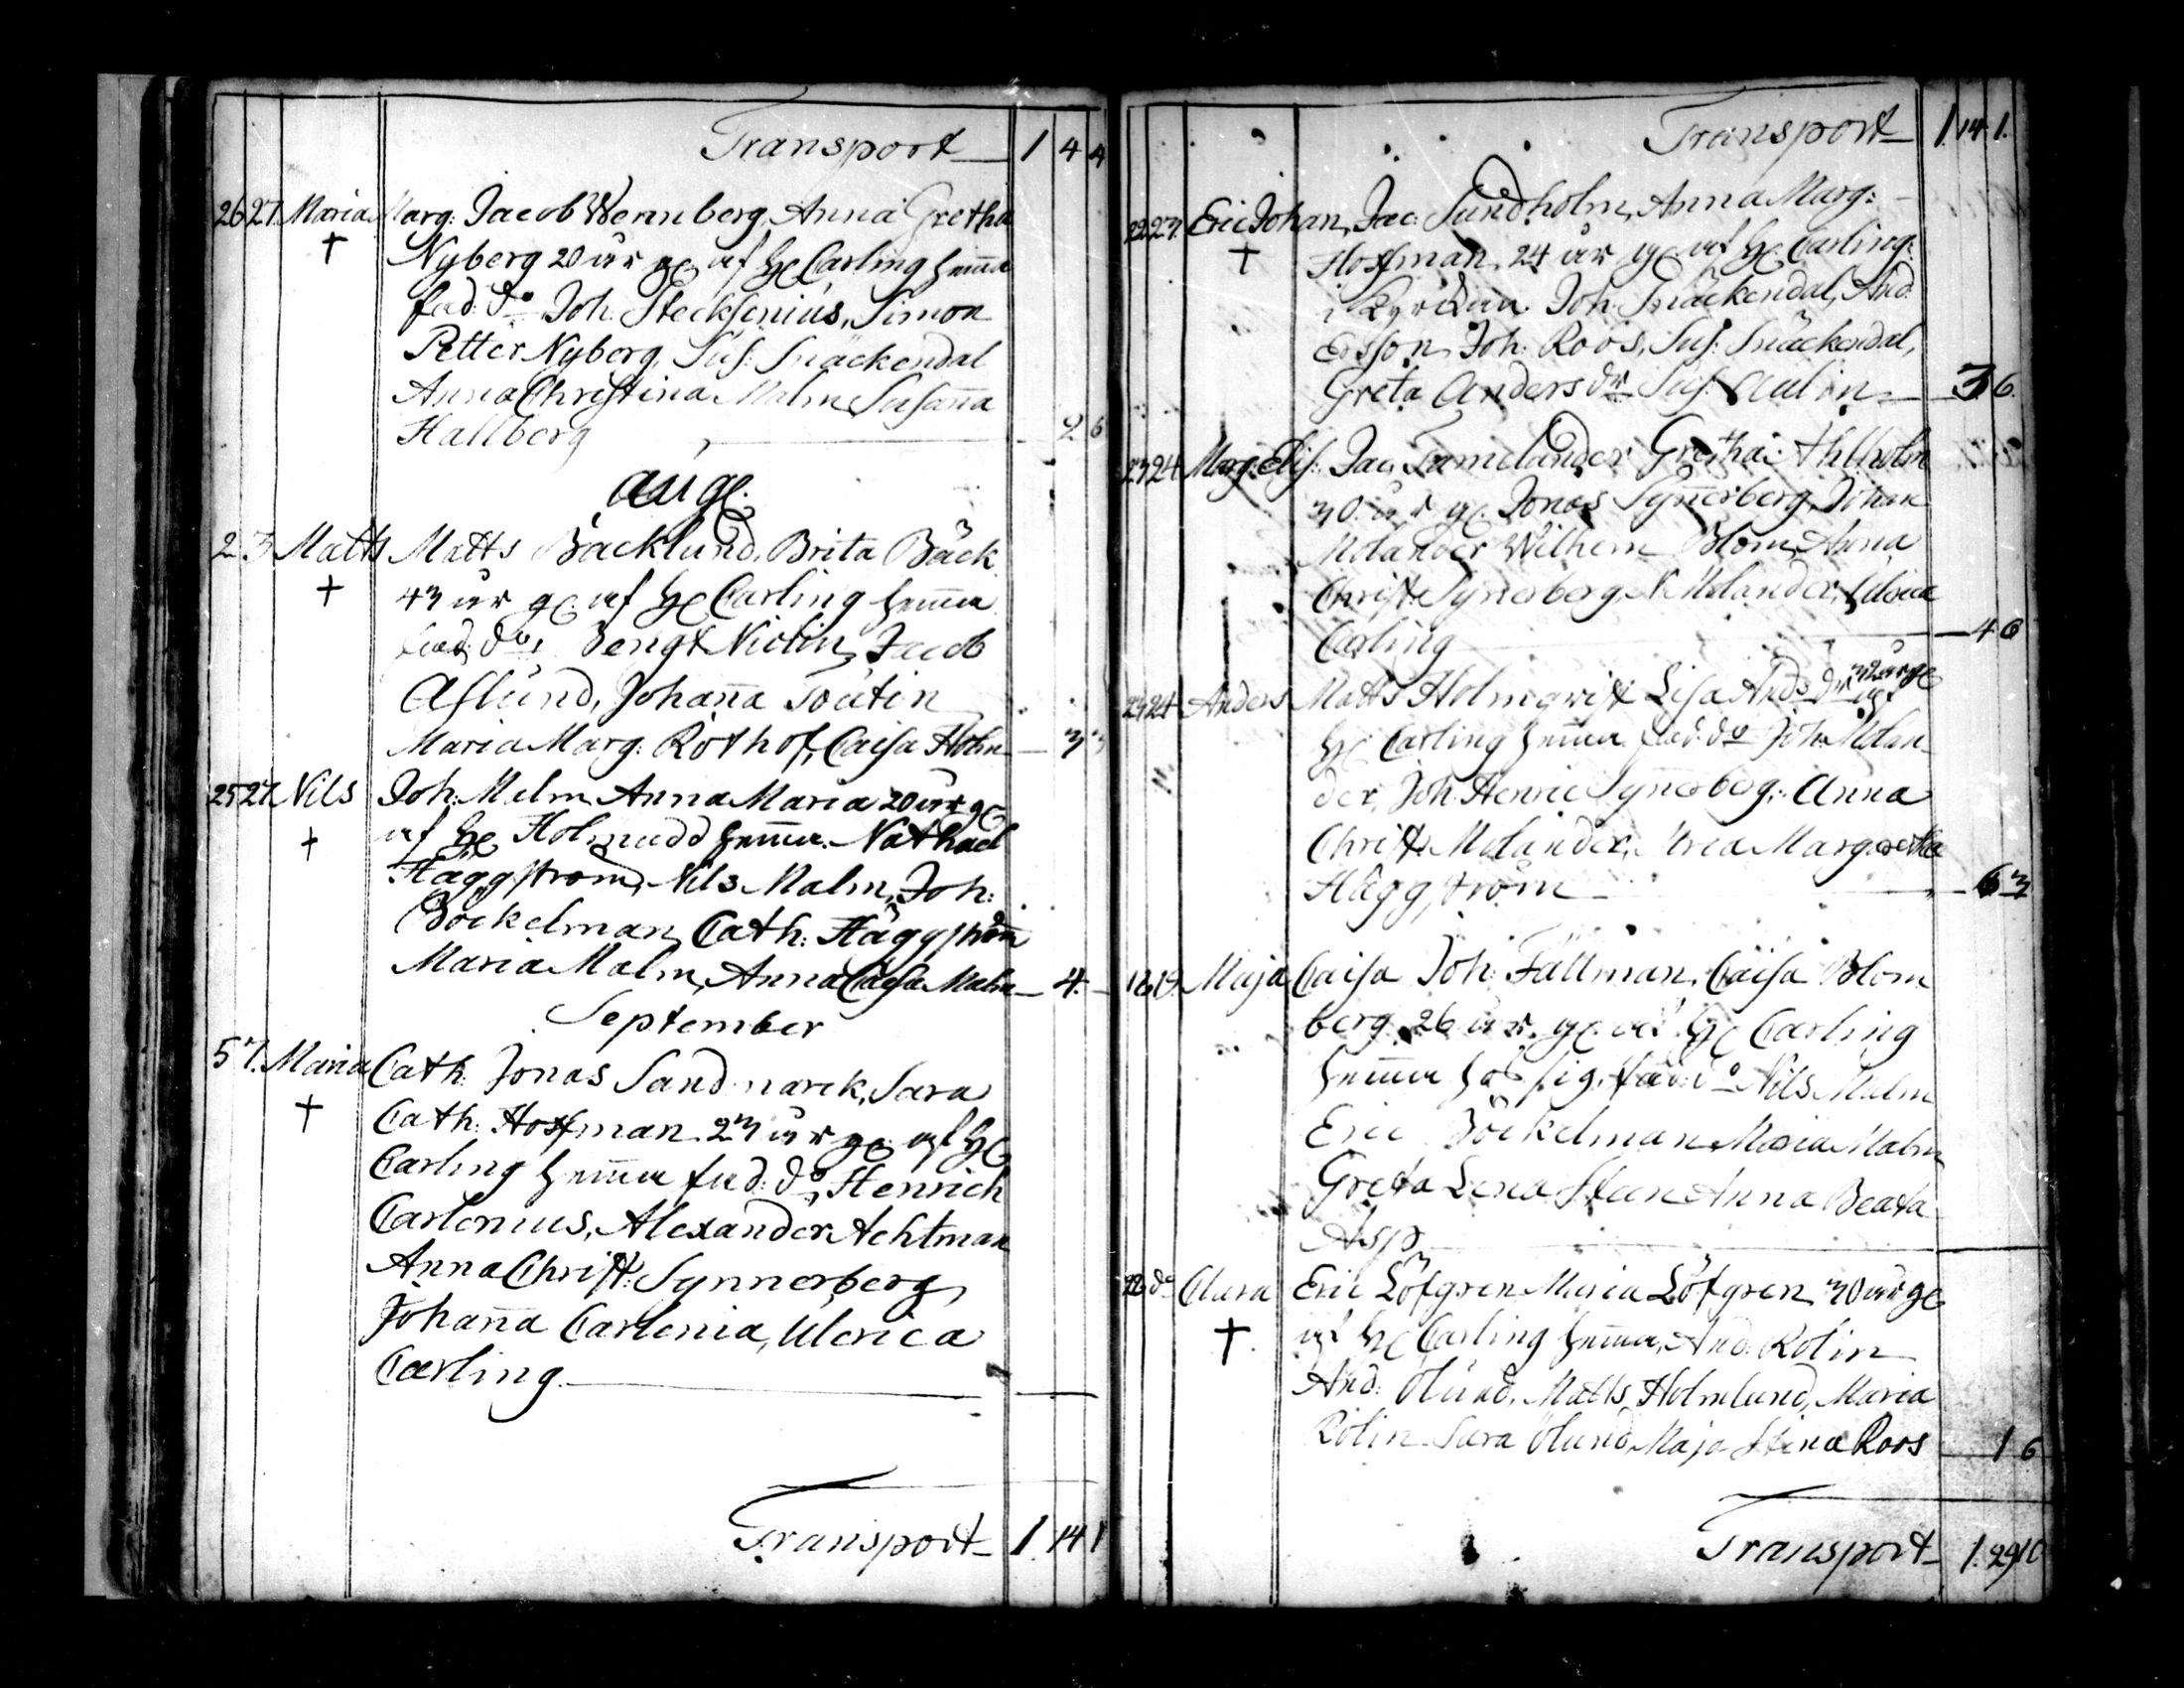 Transport 1 4 4
26 27 Maria Marg: Jacob Wennberg, Anna Gretha
Nyberg 20 år g. af H Carling hemma
fad. do Joh. Stecksenius, Simon
Petter Nyberg, Sus: Snäckendal
Anna Christina Malm Susana
Hallberg 2 6
Aug.
2 3 Matts Matts Bäcklund, Brita Bäck
43 år g. af H Carling hemma
fad. do Bengt Niclin, Jacob
Aslund, Johana Toutin
Maria Marg: Rothof, Caisa Holm 3 3
25 27 Nils Joh: Malm Anna Maria 20 år g
af H Holmudd hemma. Nathael
Häggström, Nils Malm, Joh:
Böckelman, Cath: Häggström
Maria Malm, Anna Caisa Malm 4.
September
5 7. Maria Cath. Jonas Sandmarck, Sara
Cath: Hoffman 23 år g. af H
Carling hemma fad: do Henrich
Carlenius, Alexander Achtman
Anna Christ: Synnerberg
Johana Carlenia, Ulerica
Carling
Transport 1. 14 1
Transport 1. 14. 1.
22 23. Eric Johan, Jac: Sundholm, Anna Marg:
Hoffman 24 år g. af H Carling
i Kyrckan. Joh: Snäckendal, And.
Ersson, Joh: Roos, Sus: Snäckendal,
Greta Anders dr Sus: Aulin 3 6.
23 24 Marg: Elis: Jac. Gretha: Ahlholm
30 år g. Jonas Synerberg, Johan
Molander Wilhem Blom, Anna
Christ: Synerberg, Molander, Ulrica
Carling 4 6
23 24 Anders Matts Holmqvist Lisa Ands dr 32 år g af
H Carling hemma fad. do Joh: Molan
der, Joh: Henric Synerberg, Anna
Christ: Molander, Margaretha
Häggström 6 3
18 19. Maja Caisa Joh: Fällman, Caisa Blom
berg 26 år. g. af H Carling
hemma hos sig. fad. do Nils Malm
Eric Böckelman Maria Malm
Greta Lena Steen Anna Beata
Asp
do Clara Eric Löfgren Maria Löfgren 30 år g
af H Carling hemma, And: Rolin
And: Ölund, Matts Holmlund, Maria
Rolin Sara Ölund, Maja Stina Roos 1 6
Transport 1. 29 10